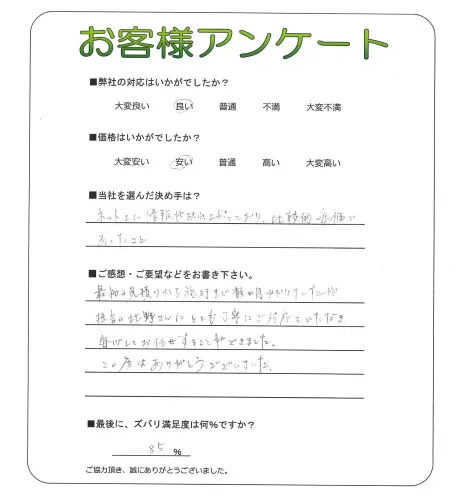 お客様アンケート
■弊社の対応はいかがでしたか？
大変良い 良い 普通 不満 大変不満
■価格はいかがでしたか？
大変安い 安い 普通 高い 大変高い
■当社を選んだ決め手は？
ネット上に情報が 比較的安価で
あったこと
■ご感想・ご要望などをお書き下さい。
最初の見積りから施行まで数か月かかりましたが
担当の北野さんにとても丁寧にご対応をいただき
安心してお任せすることができました。
この度はありがとうございました。
■最後に、ズバリ満足度は何％ですか？
85 ％
ご協力頂き、誠にありがとうございました。